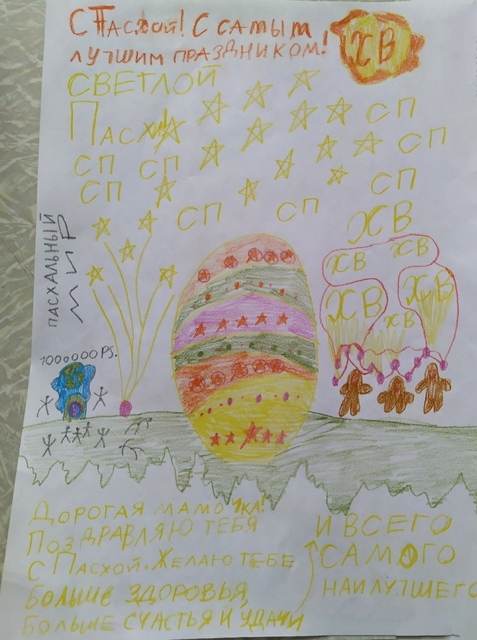 С Пасхой! С самым
лучшим праздником!
ХВ
Светлой
Пасхи
СП
СП
СП СП
СП
СП
СП СП
ХВ
ХВ ХВ
ХВ ХВ
ХВ
Пасхальный
мир
1000000 PS.
Дорогая мамочка!
Поздравляю тебя
с Пасхой. Желаю тебе
больше здоровья,
больше счастья и удачи
и всего
самого
наилучшего